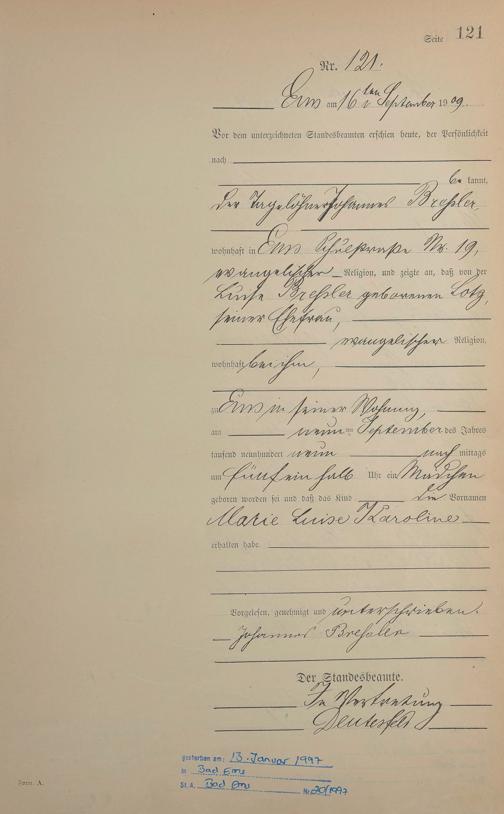 Seite 121
Nr. 121.
Ems am 16ten September 1909.
Vor dem unterzeichneten Standesbeamten erschien heute, der Persönlichkeit
nach
be kannt,
der Tagelöhner Johannes Breßler
wohnhaft in Ems Schulstraße Nr. 19,
evangelischer Religion, und zeigte an, daß von der
Luise Breßler geborenen Lotz,
seiner Ehefrau,
evangelischer Religion,
wohnhaft bei ihm,
zu Ems in seiner Wohnung,
am neunten September des Jahres
tausend neunhundert neun nach mittags
um fünf ein halb Uhr ein Mädchen
geboren worden sei und daß das Kind die Vornamen
Marie Luise Karoline
erhalten habe.
Vorgelesen, genehmigt und unterschrieben.
Johannes Breßler
Der Standesbeamte.
In Vertretung
gestorben am: 13. Januar 1997
in Bad Ems
St. A. Bad Ems Nr. 20/1997
Form. A.